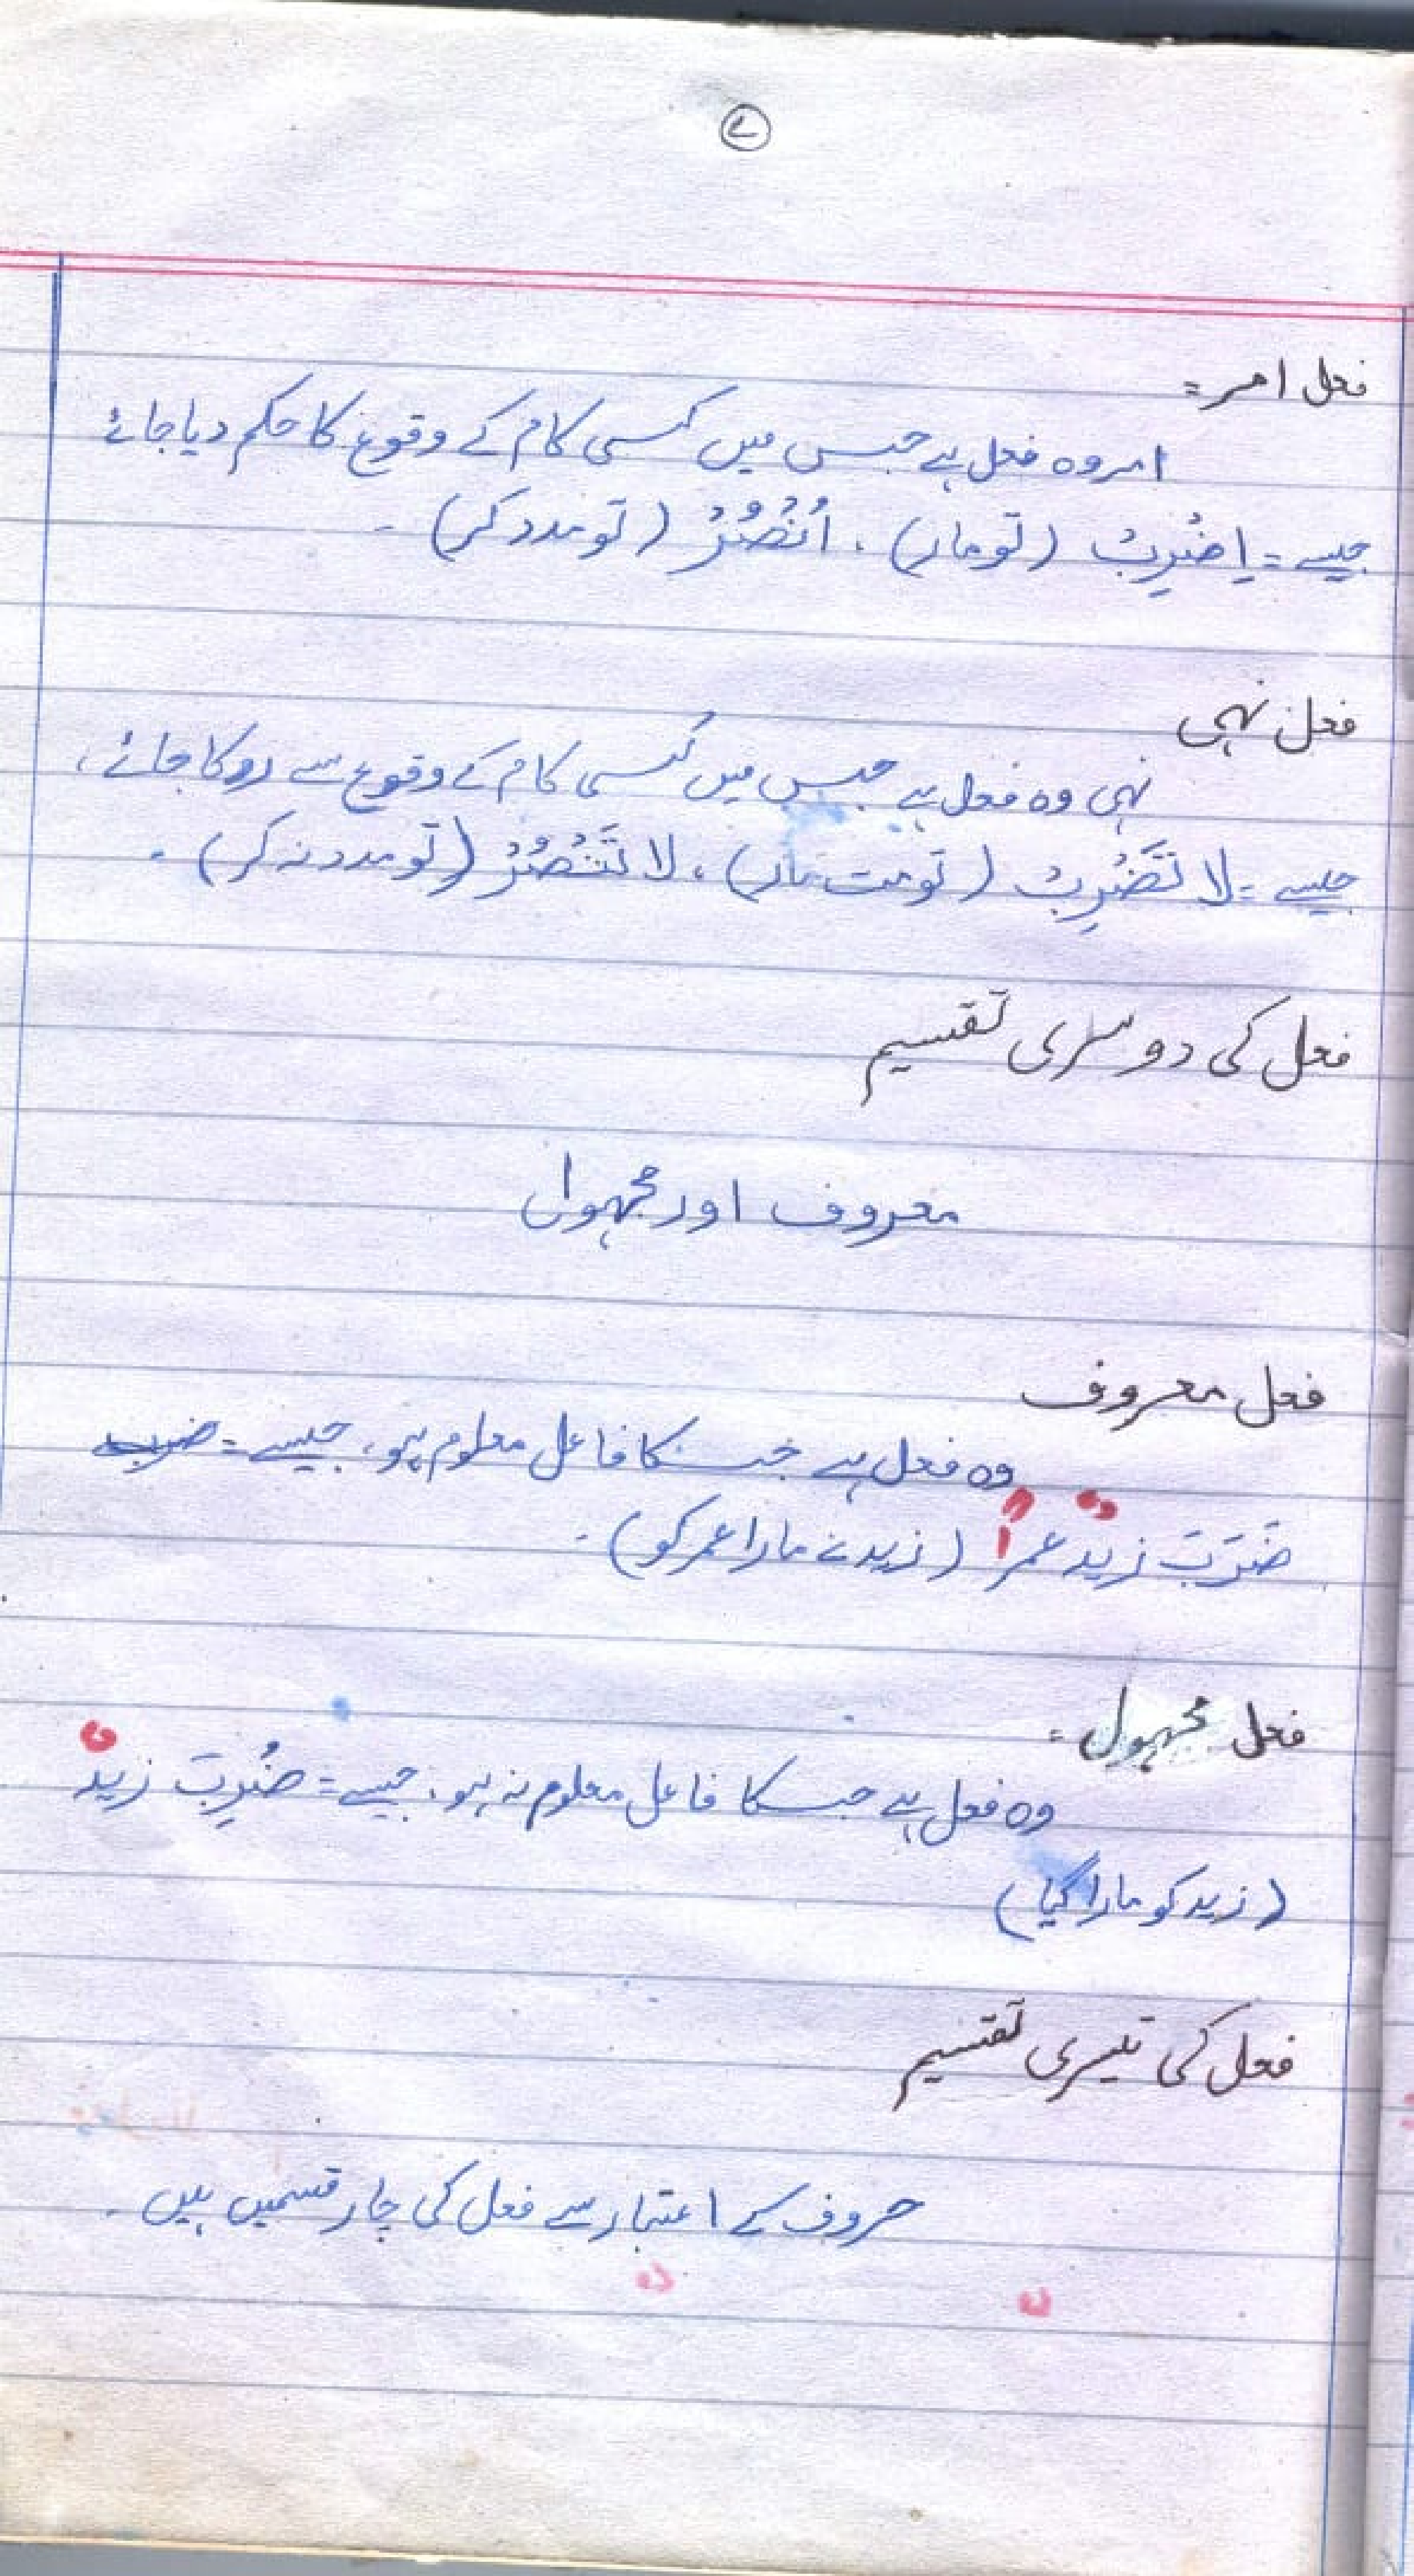 ۷
فعل امر =
امر وہ فعل ہے جس میں کسی کام کے وقوع کا حکم دیا جائے
جیسے = اِضْرِبْ (تو مار) ، اُنْصُرْ (تو مدد کر) ۔
فعل نہی
نہی وہ فعل ہے جس میں کسی کام کے وقوع سے روکا جائے ،
جیسے = لا تَضْرِبْ (تو مت مار) ، لا تَنْصُرْ (تو مدد نہ کر) ۔
فعل کی دوسری تقسیم
معروف اور مجہول
فعل معروف
وہ فعل ہے جسکا فاعل معلوم ہو، جیسے = ضرب
ضَرَبَ زیدٌ عمراً (زید نے مارا عمر کو) ۔
فعل مجہول =
وہ فعل ہے جسکا فاعل معلوم نہ ہو، جیسے = ضُرِبَ زیدٌ
(زید کو مارا گیا)
فعل کی تیسری تقسیم
حروف کے اعتبار سے فعل کی چار قسمیں ہیں ۔